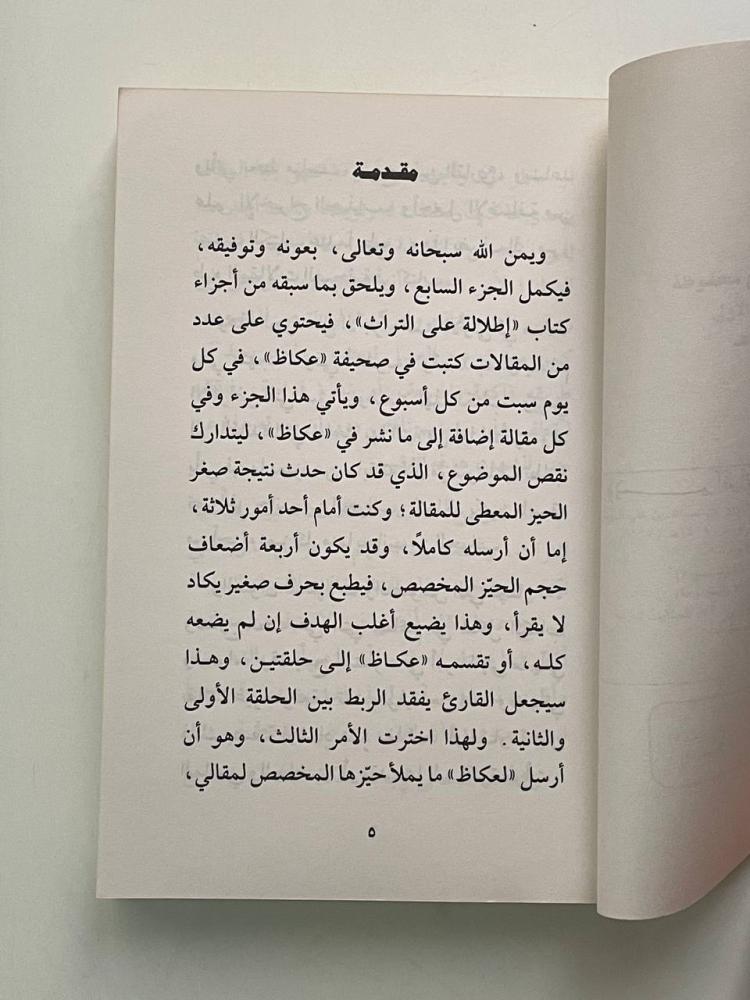 مقدمة
ويمن الله سبحانه وتعالى، بعونه وتوفيقه،
فيكمل الجزء السابع، ويلحق بما سبقه من أجزاء
كتاب «إطلالة على التراث»، فيحتوي على عدد
من المقالات كتبت في صحيفة «عكاظ»، في كل
يوم سبت من كل أسبوع، ويأتي هذا الجزء وفي
كل مقالة إضافة إلى ما نشر في «عكاظ»، ليتدارك
نقص الموضوع، الذي قد كان حدث نتيجة صغر
الحيز المعطى للمقالة؛ وكنت أمام أحد أمور ثلاثة،
إما أن أرسله كاملاً، وقد يكون أربعة أضعاف
حجم الحيّز المخصص، فيطبع بحرف صغير يكاد
لا يقرأ، وهذا يضيع أغلب الهدف إن لم يضعه
كله، أو تقسمه «عكاظ» إلى حلقتين، وهذا
سيجعل القارئ يفقد الربط بين الحلقة الأولى
والثانية. ولهذا اخترت الأمر الثالث، وهو أن
أرسل «لعكاظ» ما يملأ حيّزها المخصص لمقالي،
٥